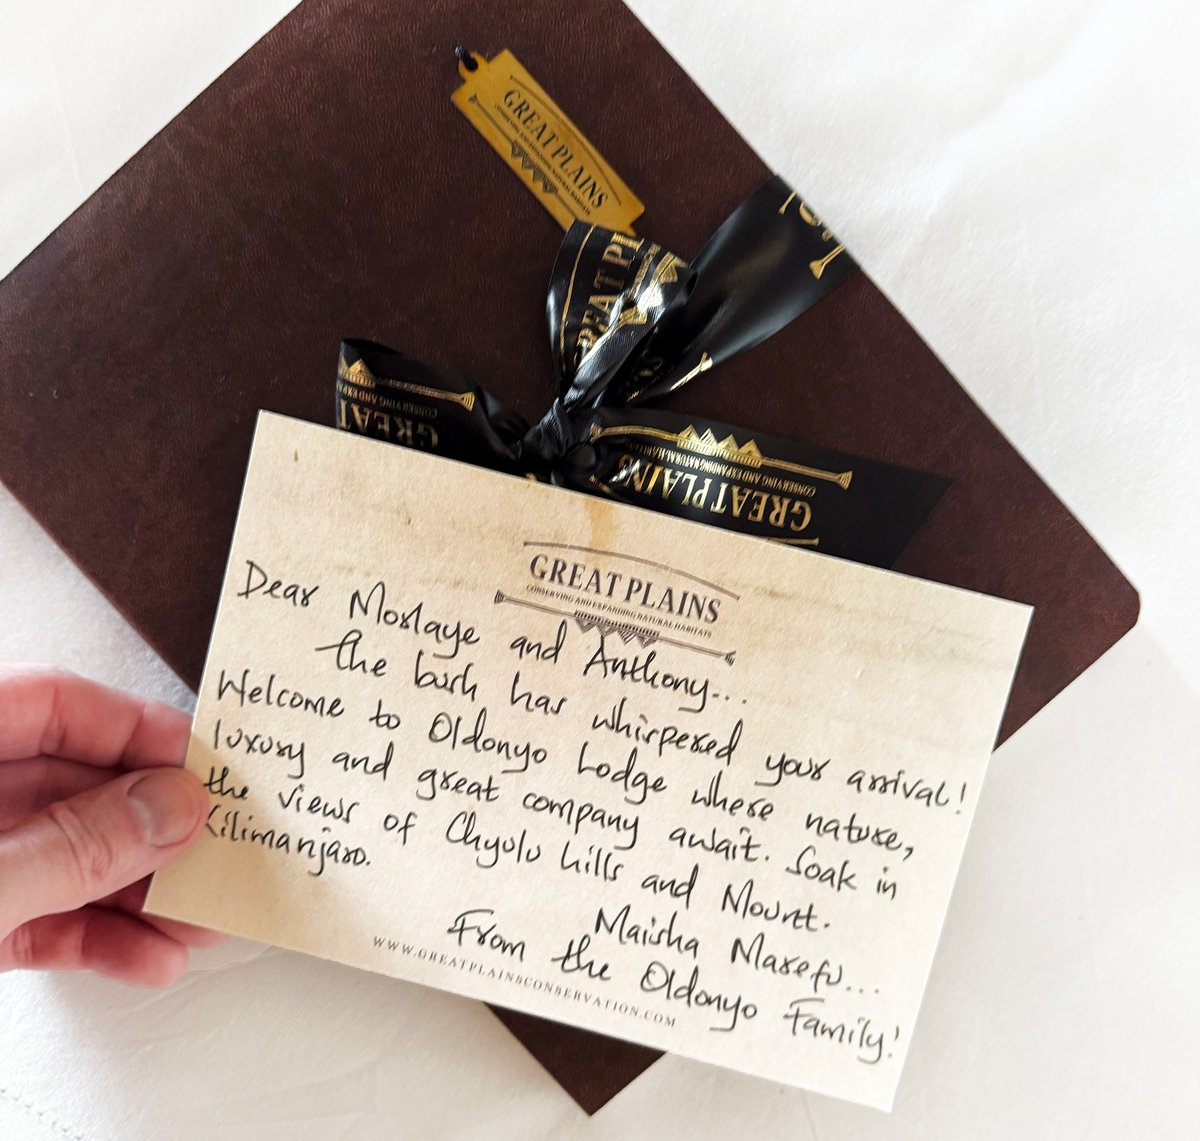 GREAT PLAINS
CONSERVING AND EXPANDING NATURAL HABITATS
GREAT PL
GREAT
CONSERVING AND EXPA
GREAT PLAINS
CONSERVING AND EXPANDING NATURAL HABITATS
GREAT PLAINS
CONSERVING AND EXPANDING NATURAL HABITATS
Dear Morlaye and Anthony...
the bush has whispered your arrival!
Welcome to Oldonyo Lodge where nature,
luxury and great company await. Soak in
the views of Chyulu hills and Mount.
Kilimanjaro.
Maisha Marefu...
From the Oldonyo Family!
WWW.GREATPLAINSCONSERVATION.COM